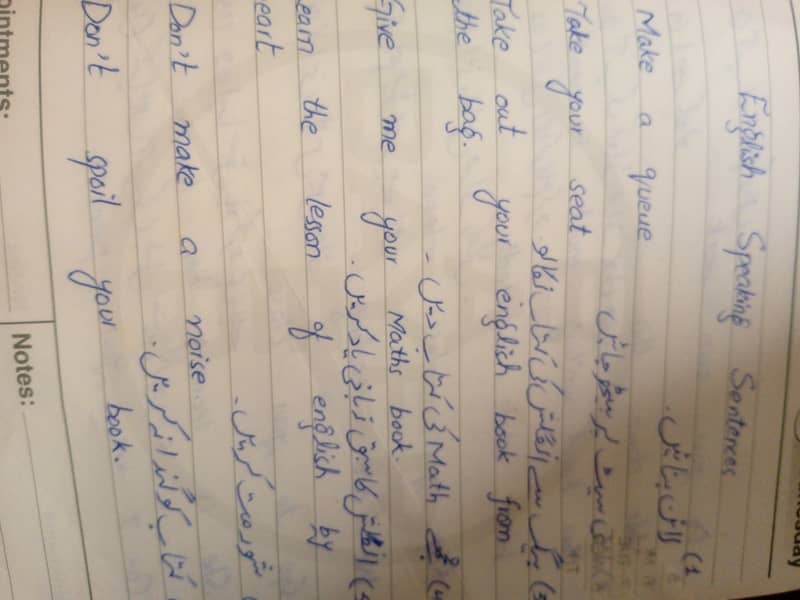 English Speaking Sentences
(1 لائن بنائیں.
Make a queue
سیٹ پر بیٹھ جائیں
Take your seat
(3 بیگ سے انگلش کی کتاب نکالو
Take out your english book from
the bag.
(4 مجھے Math کی کتاب دیں -
Give me your Maths book.
انگلش کا سبق زبانی یاد کریں.
earn the lesson of english by
eart
شور مت کریں -
Don't make a noise.
کتاب کو گندا نہ کریں.
Don't spoil your book.
ointments:
Notes:
sday